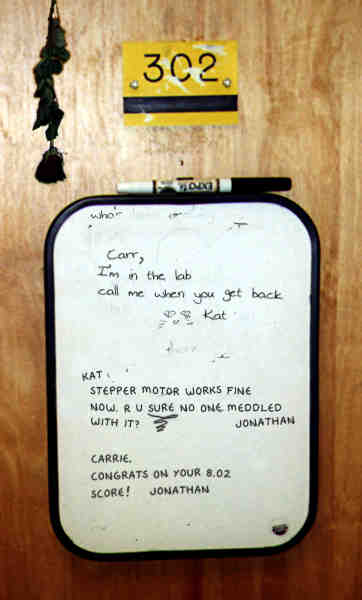 302
EXPO
who'
Carr,
I'm in the lab
call me when you get back
Kat
KAT:
STEPPER MOTOR WORKS FINE
NOW. R U SURE NO ONE MEDDLED
WITH IT? JONATHAN
CARRIE.
CONGRATS ON YOUR 8.02
SCORE! JONATHAN